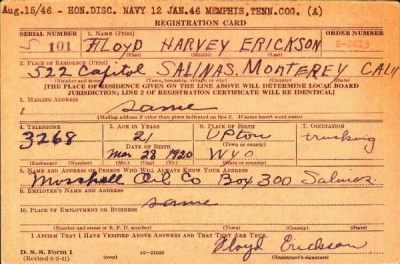 Aug.15/46 - HON.DISC. NAVY 12 JAN.46 MEMPHIS,TENN.COG. (A)
REGISTRATION CARD
SERIAL NUMBER 1. NAME (Print) ORDER NUMBER
S 101 FLOYD HARVEY ERICKSON
2. PLACE OF RESIDENCE (Print)
522 Capitol SALINAS, MONTEREY CALIF
[THE PLACE OF RESIDENCE GIVEN ON THE LINE ABOVE WILL DETERMINE LOCAL BOARD
JURISDICTION; LINE 2 OF REGISTRATION CERTIFICATE WILL BE IDENTICAL]
3. MAILING ADDRESS
same
[Mailing address if other than place indicated on line 2. If same insert word same]
4. TELEPHONE 5. AGE IN YEARS 6. PLACE OF BIRTH 7. OCCUPATION
3268 21 UPTON trucking
DATE OF BIRTH
Mar 28 1920 WYO
8. NAME AND ADDRESS OF PERSON WHO WILL ALWAYS KNOW YOUR ADDRESS
Oil Co Box 300 Salinas
9. EMPLOYER'S NAME AND ADDRESS
same
10. PLACE OF EMPLOYMENT OR BUSINESS
I AFFIRM THAT I HAVE VERIFIED ABOVE ANSWERS AND THAT THEY ARE TRUE.
D. S. S. Form 1 Floyd Erickson
(Registrant's signature)